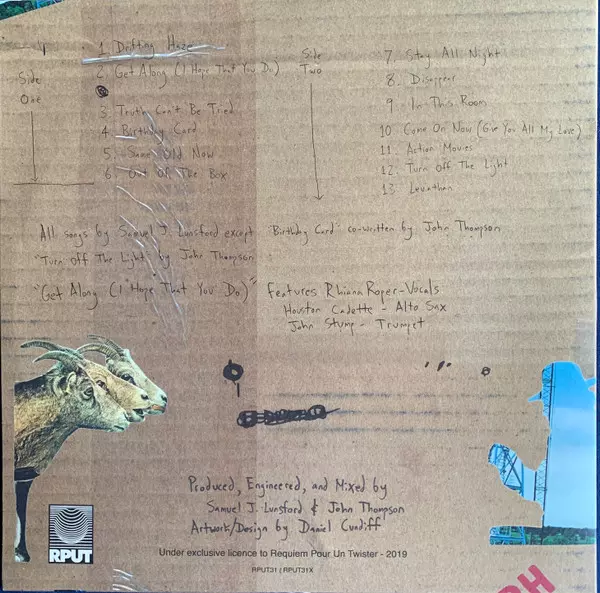 Side
One
1. Drifting Haze
2. Get Along (I Hope That You Do)
3. Truth Can't Be Tried
4. Birthday Card
5. Same Old Now
6. Out Of The Box
Side
Two
7. Stay All Night
8. Disappear
9. In This Room
10. Come On Now (Give You All My Love)
11. Action Movies
12. Turn Off The Light
13. Leviathan
All songs by Samuel J. Lunsford except "Birthday Card" co-written by John Thompson
"Turn Off The Light" by John Thompson
"Get Along (I Hope That You Do)" Features Rhiana Roper-Vocals
Houston Cadette - Alto Sax
John Stump - Trumpet
Produced, Engineered, and Mixed by
Samuel J. Lunsford & John Thompson
Artwork/Design by Daniel Cundiff
RPUT
Under exclusive licence to Requiem Pour Un Twister - 2019
RPUT31 / RPUT31X